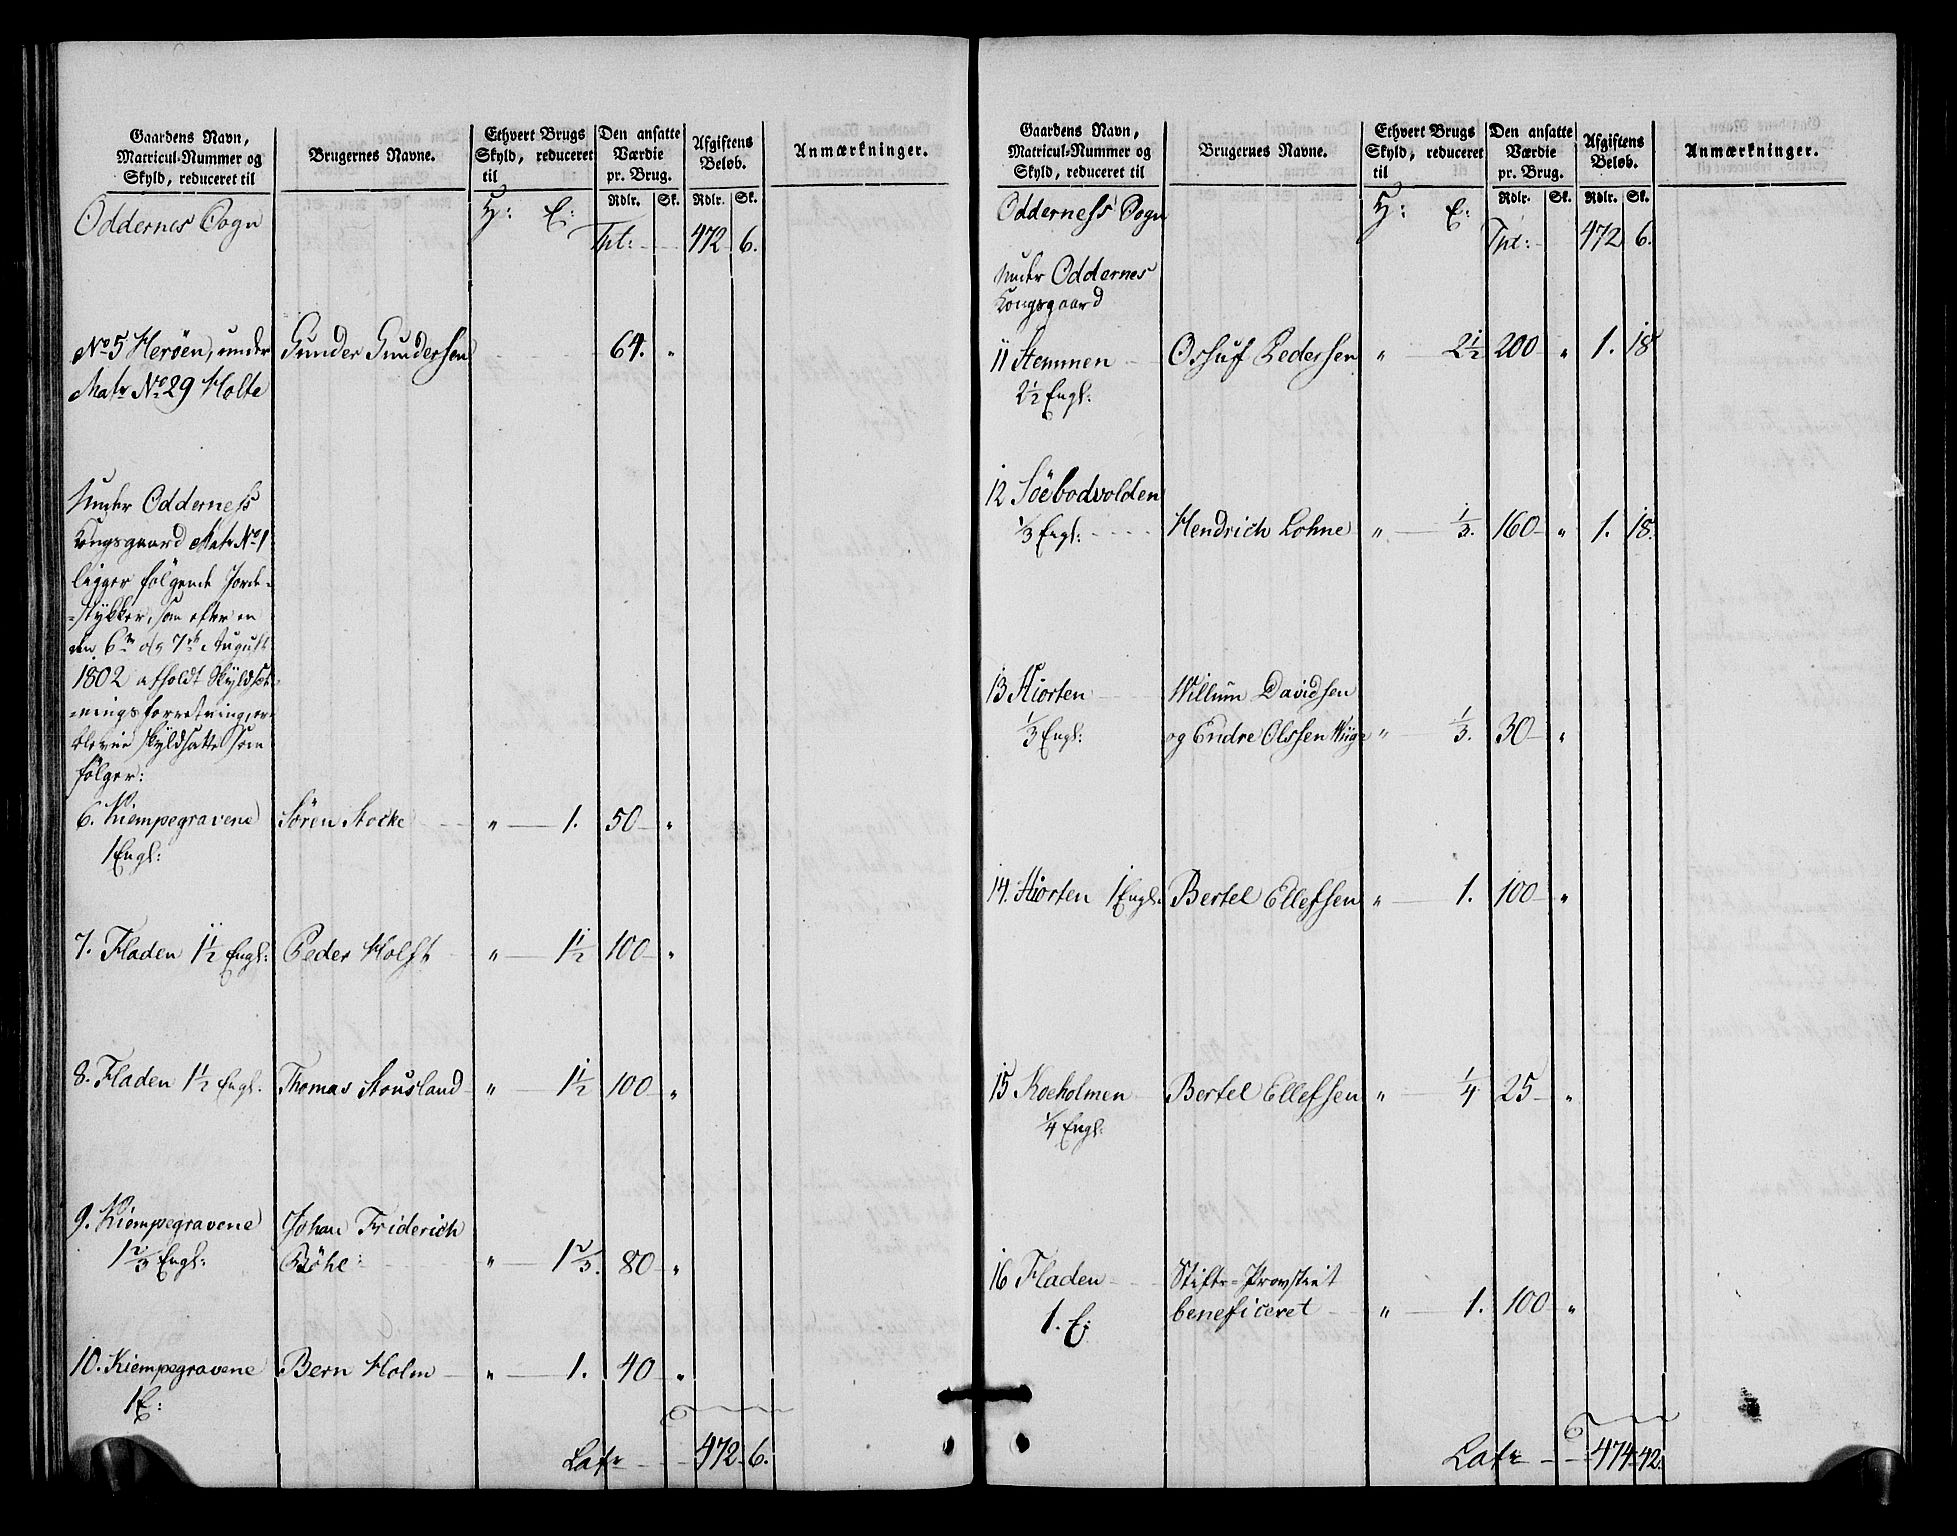 Gaardens Navn, Matricul-Nummer og Skyld, reduceret til | Brugernes Navne. | Ethvert Brugs Skyld, reduceret til | Den ansatte Værdie pr. Brug. | Afgiftens Beløb. | Anmærkninger.
Rdlr. | Sk. | Rdlr. | Sk.
Oddernes Sogn | H: | E: | Tpt: | 472 | 6.
No 5 Herøen, under | Gunder Gundersen | 64. | "
Matr No 29 Holte
Under Odderness
Kongsgaard Matr No 1
ligger følgende Jorde-
-stykker, som efter en
den 6te og 7de August
1802 afholdt Skyldsæt-
-nings forretning, er
blevne skyldsatte som
følger:
6. Kiempegravene | Søren Stocke | " | 1. | 50 | "
1 Engl:
7. Fladen 1 1/2 Engl: | Peder Holst | " | 1 1/2 | 100 | "
8. Fladen 1 1/2 Engl. | Thomas Stousland | " | 1 1/2 | 100 | "
9. Kiempegravene | Johan Friderich
1 2/3 Engl: | Böhe: | " | 1 2/3. | 80 | "
10. Kiempegravene | Bern Holm | " | 1. | 40 | "
1 E:
Latr | 472 | 6.
Gaardens Navn, Matricul-Nummer og Skyld, reduceret til | Brugernes Navne. | Ethvert Brugs Skyld, reduceret til | Den ansatte Værdie pr. Brug. | Afgiftens Beløb. | Anmærkninger.
Rdlr. | Sk. | Rdlr. | Sk.
Odderness Sogn | H: | E: | Tpt: | 472 | 6.
Under Oddernes
Kongsgaard
11 Stemmen | Osuf Pedersen | " | 2 1/2 | 200 | " | 1. | 18
2 1/2 Engl:
12 Søebodvolden
1/3 Engl: | Hendrich Lohne | " | 1/3. | 160 | " | 1. | 18.
13 Hiorten | Willum Davidsen
1/3 Engl: | og Endre Olssen Wiige | " | 1/3. | 30 | "
14. Hiorten 1 Engl. | Bertel Ellefsen | " | 1. | 100 | "
15 Koeholmen | Bertel Ellefsen | " | 1/4 | 25 | "
1/4 Engl:
16 Fladen | Stifts-Provstiet
1. E: | beneficeret | " | 1. | 100 | "
Latr | 474 | 42.